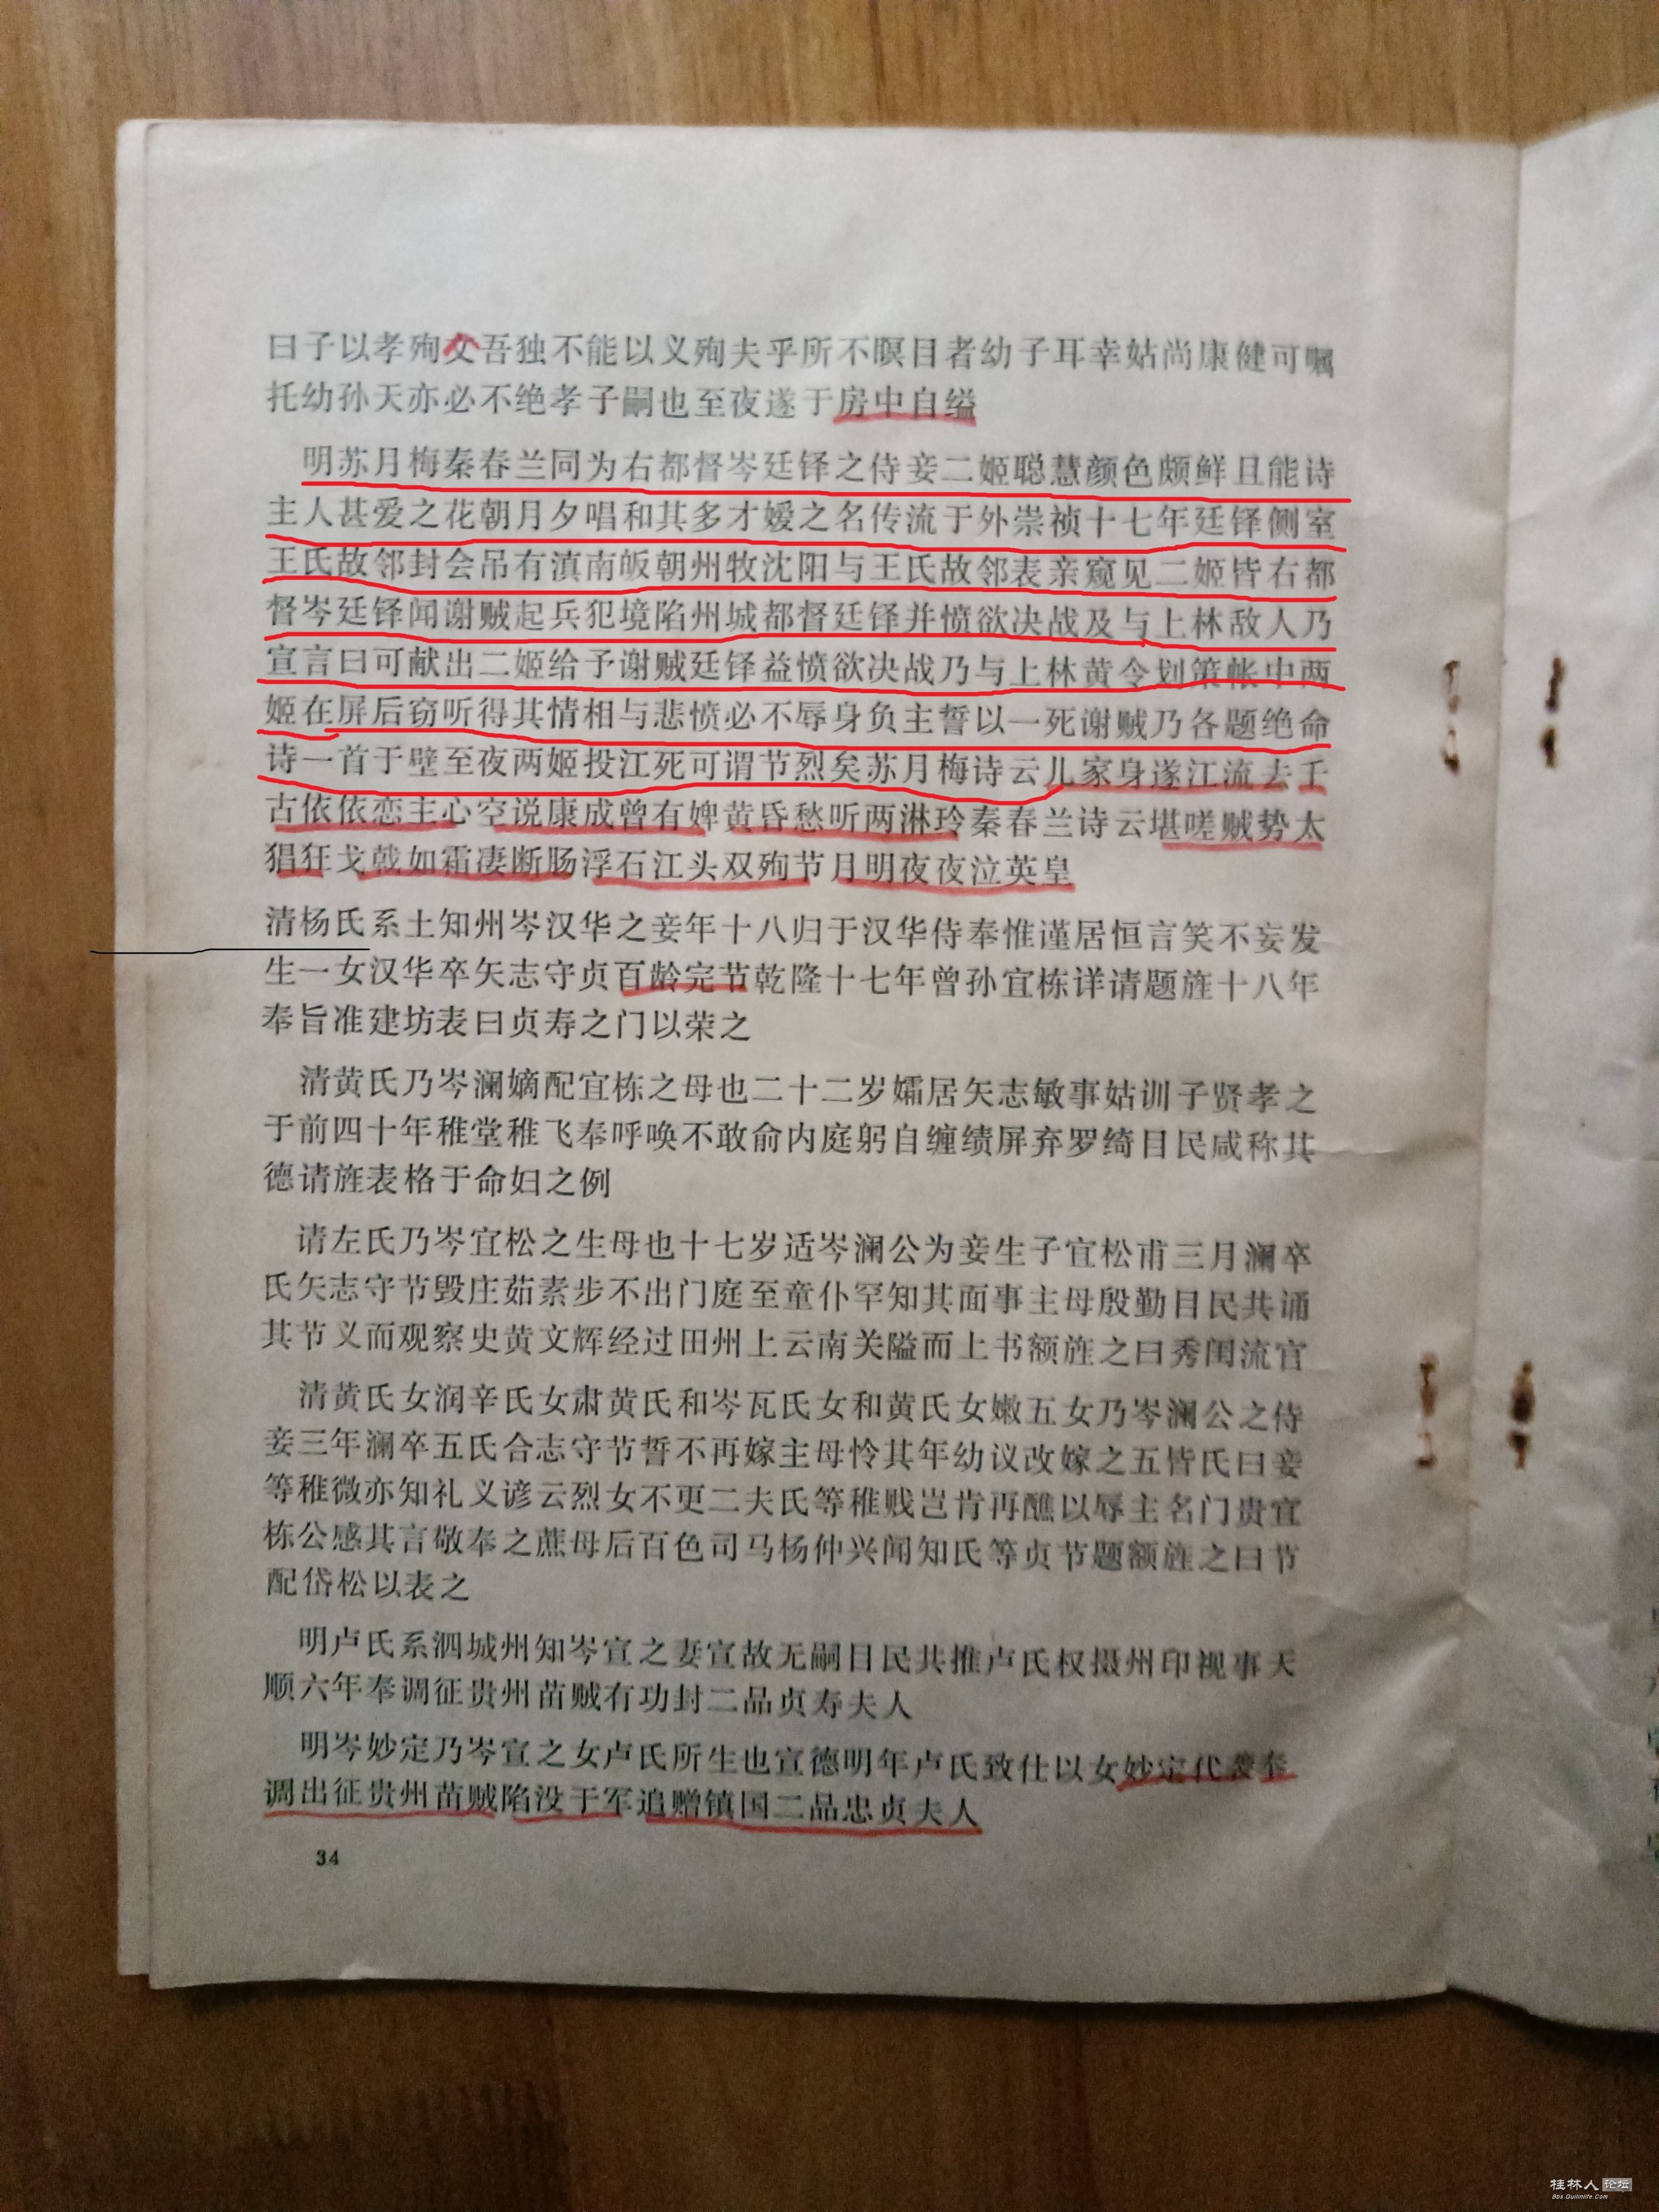 曰子以孝殉父吾独不能以义殉夫乎所不瞑目者幼子耳幸姑尚康健可嘱
托幼孙天亦必不绝孝子嗣也至夜遂于房中自缢
明苏月梅秦春兰同为右都督岑廷铎之侍妾二姬聪慧颜色颇鲜且能诗
主人甚爱之花朝月夕唱和其多才嫒之名传流于外崇祯十七年廷铎侧室
王氏故邻封会吊有滇南皈朝州牧沈阳与王氏故邻表亲窥见二姬皆右都
督岑廷铎闻谢贼起兵犯境陷州城都督廷铎并愤欲决战及与上林敌人乃
宣言曰可献出二姬给予谢贼廷铎益愤欲决战乃与上林黄令划策帐中两
姬在屏后窃听得其情相与悲愤必不辱身负主誓以一死谢贼乃各题绝命
诗一首于壁至夜两姬投江死可谓节烈矣苏月梅诗云儿家身遂江流去千
古依依恋主心空说康成曾有婢黄昏愁听两淋玲秦春兰诗云堪嗟贼势太
猖狂戈戟如霜凄断肠浮石江头双殉节月明夜夜泣英皇
清杨氏系土知州岑汉华之妾年十八归于汉华侍奉惟谨居恒言笑不妄发
生一女汉华卒矢志守贞百龄完节乾隆十七年曾孙宜栋详请题旌十八年
奉旨准建坊表曰贞寿之门以荣之
清黄氏乃岑澜嫡配宜栋之母也二十二岁孀居矢志敏事姑训子贤孝之
于前四十年稚堂稚飞奉呼唤不敢俞内庭躬自缠绩屏弃罗绮目民咸称其
德请旌表格于命妇之例
请左氏乃岑宜松之生母也十七岁适岑澜公为妾生子宜松甫三月澜卒
氏矢志守节毁庄茹素步不出门庭至童仆罕知其面事主母殷勤目民共诵
其节义而观察史黄文辉经过田州上云南关隘而上书额旌之曰秀闺流官
清黄氏女润辛氏女肃黄氏和岑瓦氏女和黄氏女嫩五女乃岑澜公之侍
妾三年澜卒五氏合志守节誓不再嫁主母怜其年幼议改嫁之五皆氏曰妾
等稚微亦知礼义谚云烈女不更二夫氏等稚贱岂肯再醮以辱主名门贵宜
栋公感其言敬奉之蔗母后百色司马杨仲兴闻知氏等贞节题额旌之曰节
配岱松以表之
明卢氏系泗城州知岑宣之妻宣故无嗣目民共推卢氏权摄州印视事天
顺六年奉调征贵州苗贼有功封二品贞寿夫人
明岑妙定乃岑宣之女卢氏所生也宣德明年卢氏致仕以女妙定代袭奉
调出征贵州苗贼陷没于军追赠镇国二品忠贞夫人
34
桂林人论坛
Bbs.Guilinlife.Com